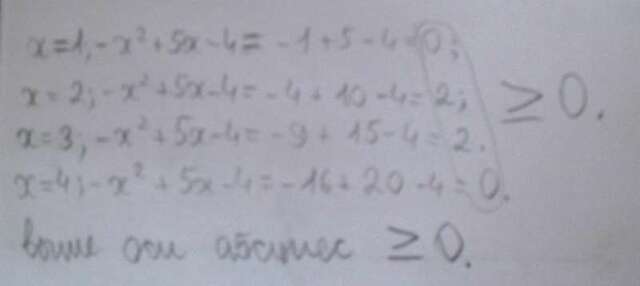 x=1, -x²+5x-4= -1+5-4=0;
x=2; -x²+5x-4= -4+10-4=2; ≥0.
x=3; -x²+5x-4= -9+15-4=2.
x=4; -x²+5x-4= -16+20-4=0.
выше оси абсцисс ≥0.